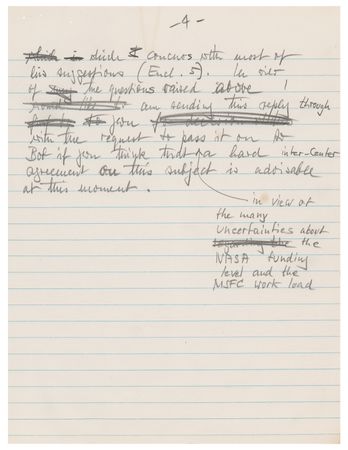 - 4 -
which I concurs with most of
his suggestions (Encl. 5). In view
of the questions raised above I
am sending this reply through
you
with the request to pass it on to
Bob if you think that a hard inter-Center
agreement on this subject is advisable
at this moment.
in view of
the many
Uncertainties about
the
NASA funding
level and the
MSFC work load